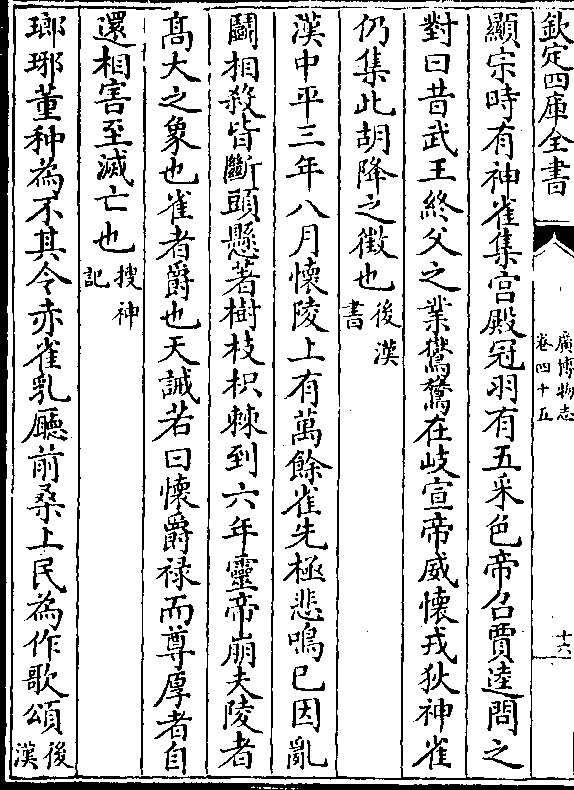 欽定四庫全書
廣博物志
卷四十五
十六
顯宗時有神雀集宫殿冠羽有五采色帝召賈逵問之
對曰昔武王終父之業鸑鷟在岐宣帝威懷戎狄神雀
仍集此胡降之徵也後漢書
漢中平三年八月懷陵上有萬餘雀先極悲鳴已因亂
鬬相殺皆斷頭懸著樹枝枳棘到六年靈帝崩夫陵者
髙大之象也雀者爵也天誡若曰懷爵禄而尊厚者自
還相害至滅亡也搜神記
瑯琊董种為不其令赤雀乳廳前桑上民為作歌頌後漢